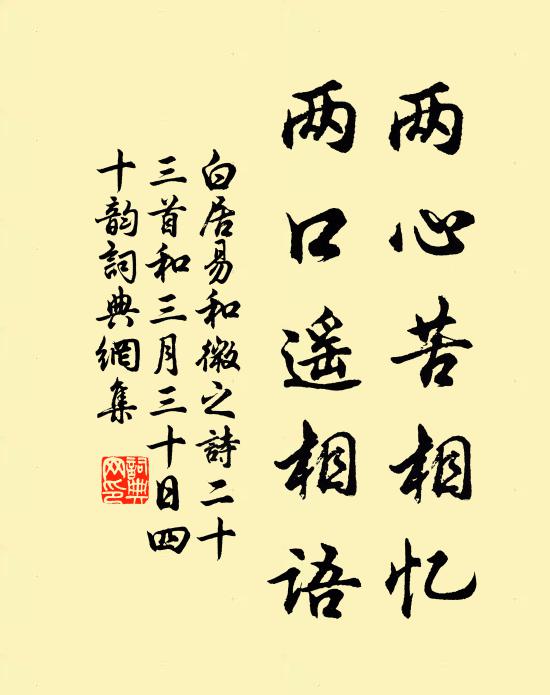 两心苦相忆
两口遥相语
白居易和微之詩二十
三首和三月三十日四
十韵詞典網集
詞典
网印